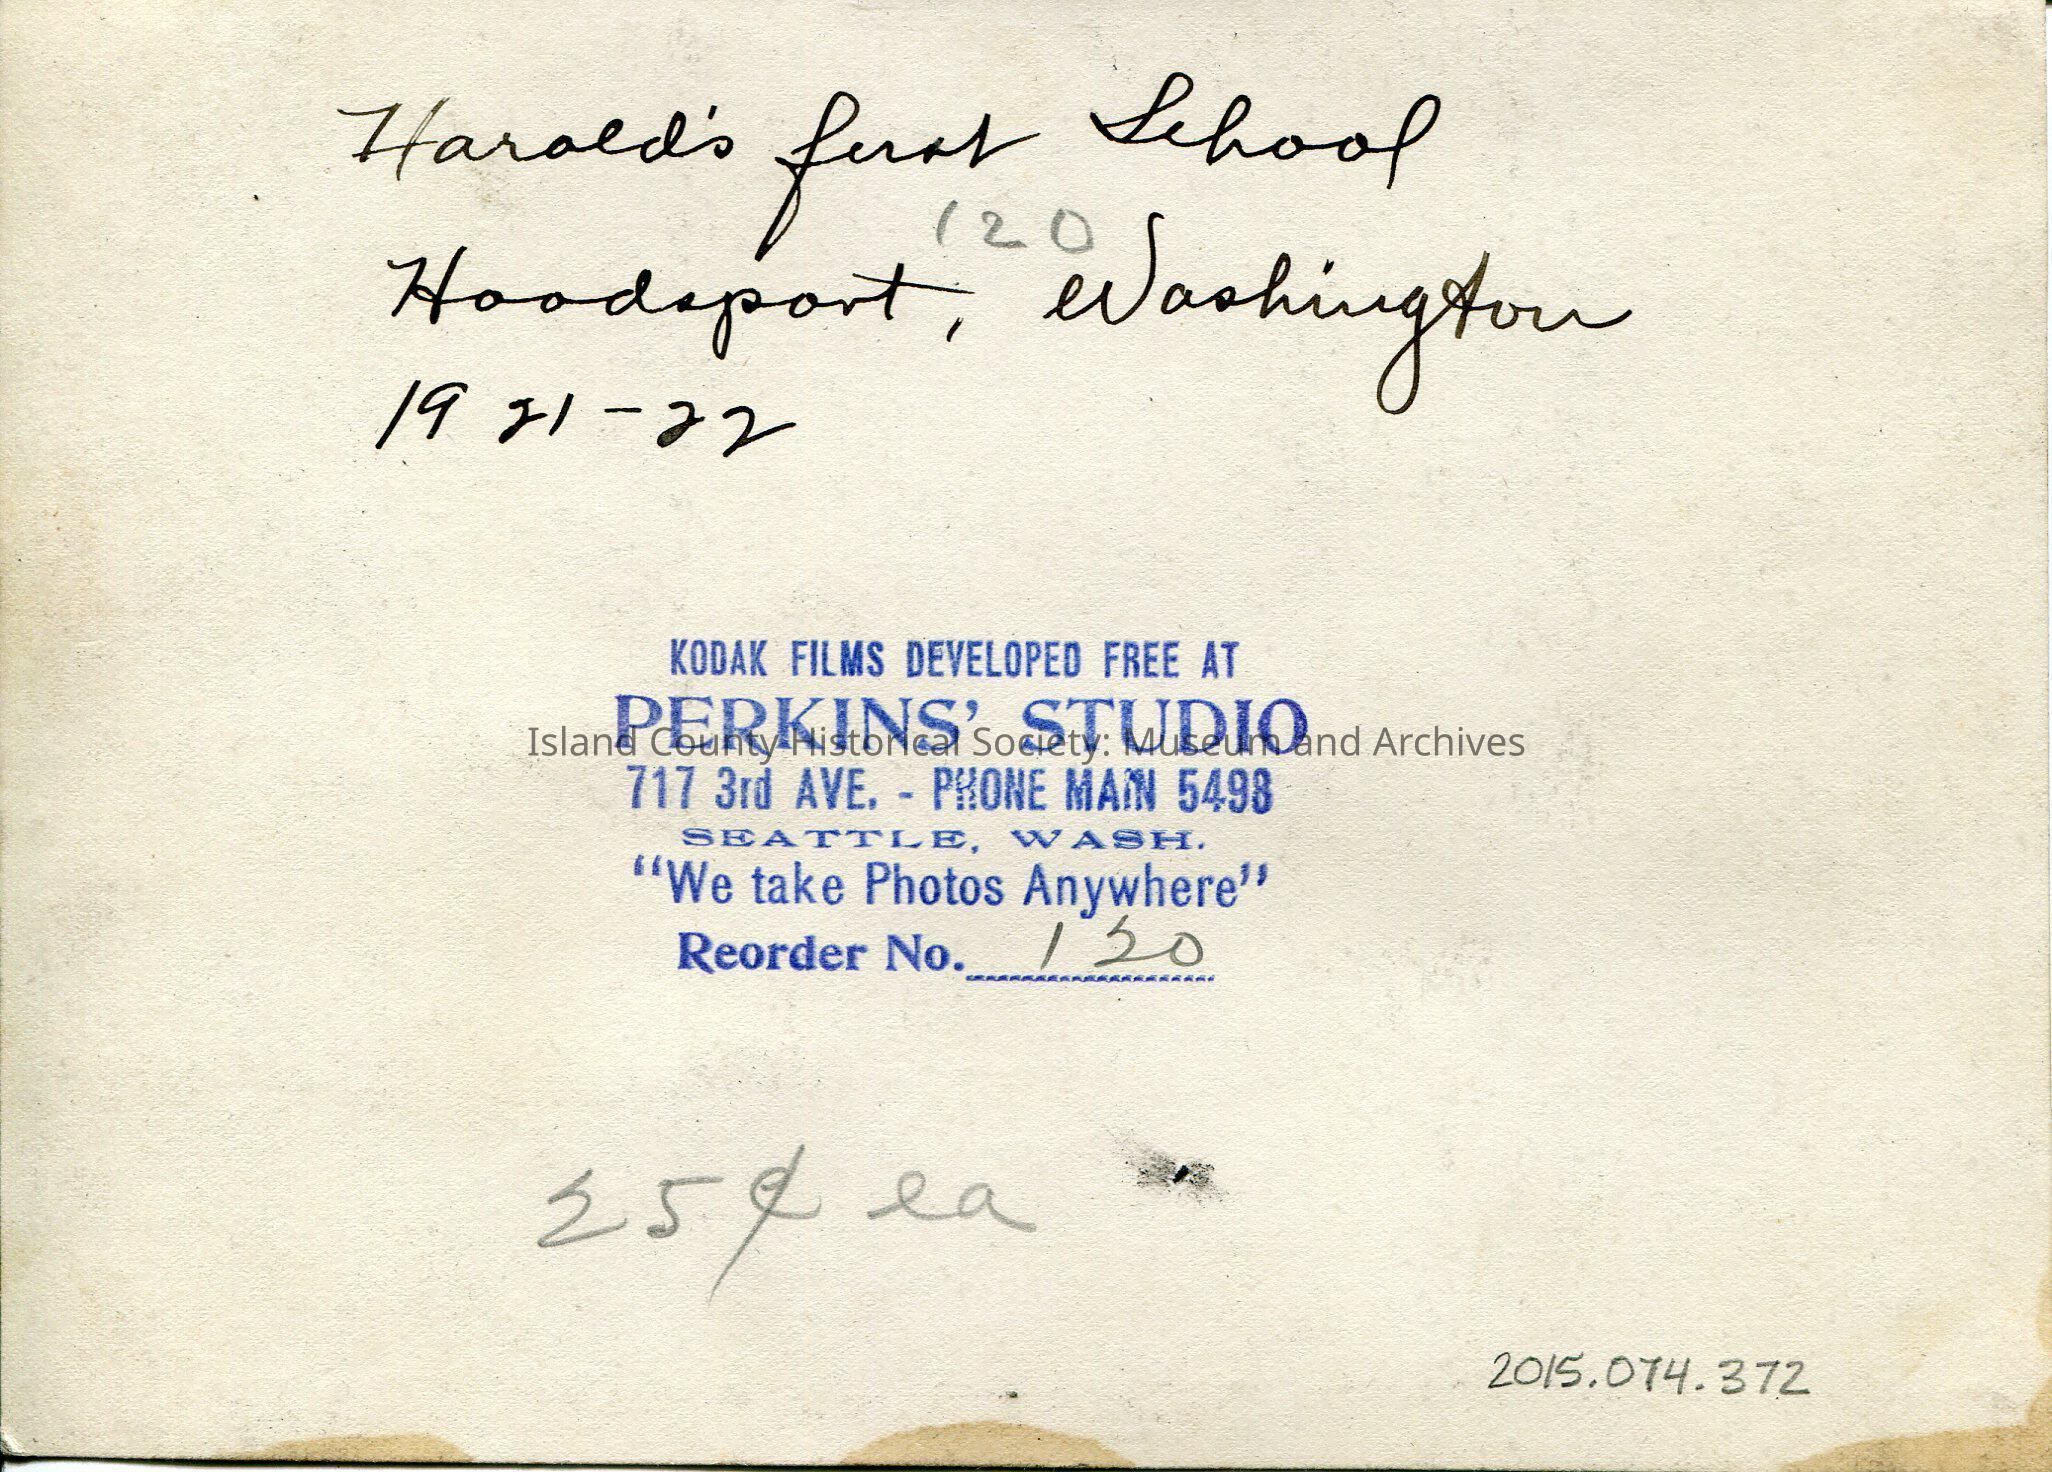 Harold's first School
120
Hoodsport, Washington
1921-22
KODAK FILMS DEVELOPED FREE AT
PERKINS' STUDIO
Island County Historical Society: Museum and Archives
717 3rd AVE. - PHONE MAIN 5498
SEATTLE, WASH.
"We take Photos Anywhere"
Reorder No. 120
25¢ ea
2015.074.372